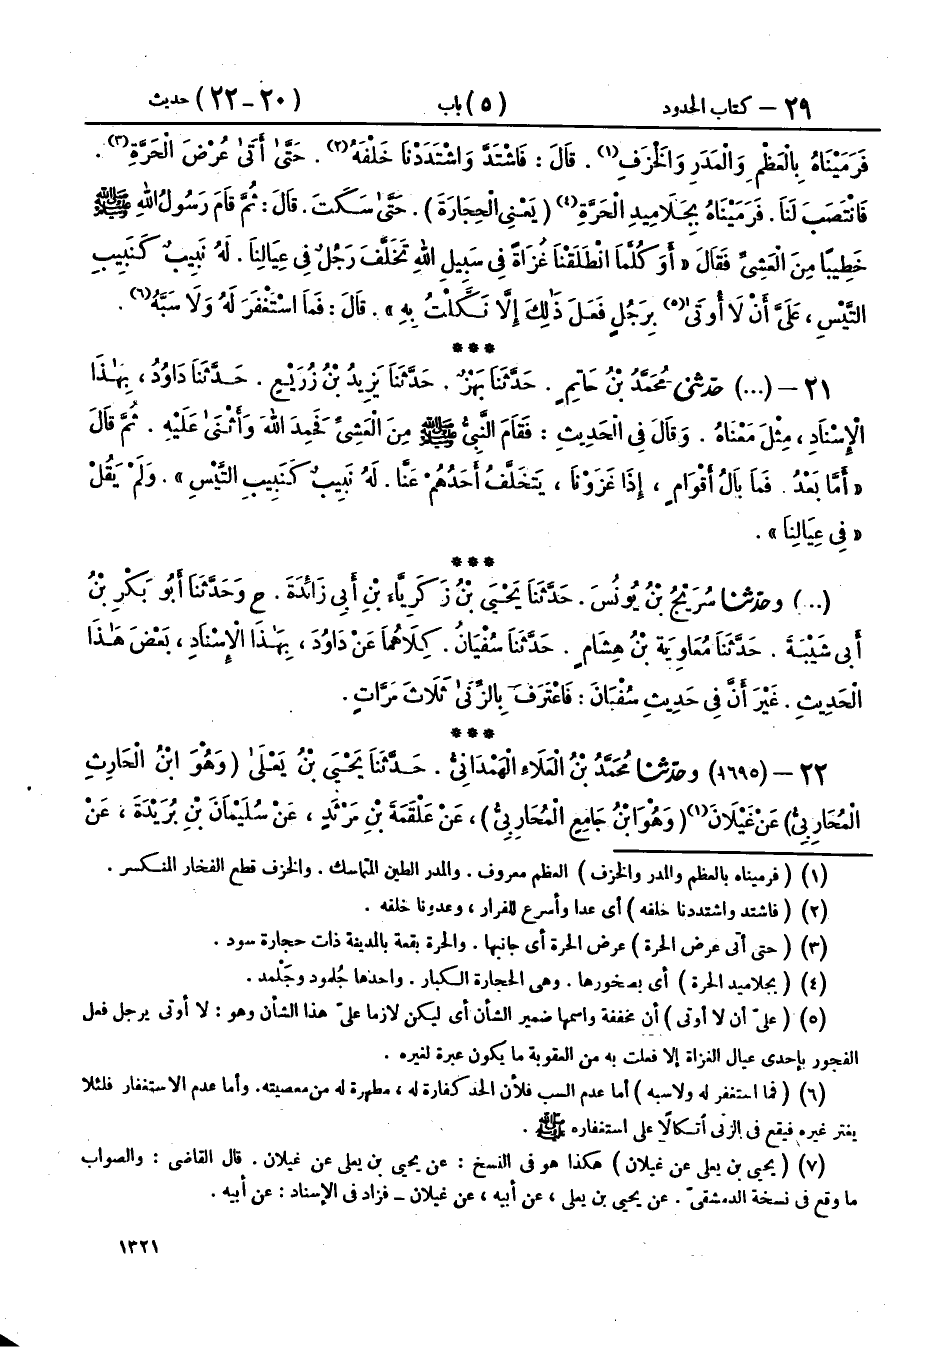 ٢٩ – كتاب الحدود (٥) باب (٢٠-٢٢) حديث
فَرَمَيْنَاهُ بِالْعَظْمِ وَالْمَدَرِ وَالْخَزَفِ(١) . قَالَ : فَاشْتَدَّ وَاشْتَدَدْنَا خَلْفَهُ(٢) . حَتَّىٰ أَتَىٰ عُرْضَ الْحَرَّةِ(٣) .
فَانْتَصَبَ لَنَا . فَرَمَيْنَاهُ بِجَلَامِيدِ الْحَرَّةِ(٤) ( يَعْنِي الْحِجَارَةَ ) . حَتَّىٰ سَكَتَ . قَالَ : ثُمَّ قَامَ رَسُولُ اللهِ ﷺ
خَطِيبًا مِنَ الْعَشِيِّ فَقَالَ « أَوَ كُلَّمَا انْطَلَقْنَا غُزَاةً فِي سَبِيلِ اللهِ تَخَلَّفَ رَجُلٌ فِي عِيَالِنَا . لَهُ نَبِيبٌ كَنَبِيبِ
التَّيْسِ ، عَلَيَّ أَنْ لَا أُوتَىٰ(٥) بِرَجُلٍ فَعَلَ ذَٰلِكَ إِلَّا نَكَّلْتُ بِهِ » . قَالَ : فَمَا اسْتَغْفَرَ لَهُ وَلَا سَبَّهُ(٦) .
***
٢١ – (...) حدثني مُحَمَّدُ بْنُ حَاتِمٍ . حَدَّثَنَا بَهْزٌ . حَدَّثَنَا يَزِيدُ بْنُ زُرَيْعٍ . حَدَّثَنَا دَاوُدُ ، بِهَٰذَا
الْإِسْنَادِ ، مِثْلَ مَعْنَاهُ . وَقَالَ فِي الْحَدِيثِ : فَقَامَ النَّبِيُّ ﷺ مِنَ الْعَشِيِّ فَحَمِدَ اللهَ وَأَثْنَىٰ عَلَيْهِ . ثُمَّ قَالَ
« أَمَّا بَعْدُ . فَمَا بَالُ أَقْوَامٍ ، إِذَا غَزَوْنَا ، يَتَخَلَّفُ أَحَدُهُمْ عَنَّا . لَهُ نَبِيبٌ كَنَبِيبِ التَّيْسِ » . وَلَمْ يَقُلْ
« فِي عِيَالِنَا » .
***
(...) وحدثنا سُرَيْجُ بْنُ يُونُسَ . حَدَّثَنَا يَحْيَى بْنُ زَكَرِيَّاءَ بْنِ أَبِي زَائِدَةَ . ح وَحَدَّثَنَا أَبُو بَكْرِ بْنُ
أَبِي شَيْبَةَ . حَدَّثَنَا مُعَاوِيَةُ بْنُ هِشَامٍ . حَدَّثَنَا سُفْيَانُ . كِلَاهُمَا عَنْ دَاوُدَ ، بِهَٰذَا الْإِسْنَادِ ، بَعْضَ هَٰذَا
الْحَدِيثِ . غَيْرَ أَنَّ فِي حَدِيثِ سُفْيَانَ : فَاعْتَرَفَ بِالزِّنَىٰ ثَلَاثَ مَرَّاتٍ .
***
٢٢ – (١٦٩٥) وحدثنا مُحَمَّدُ بْنُ الْعَلَاءِ الْهَمْدَانِيُّ . حَدَّثَنَا يَحْيَى بْنُ يَعْلَىٰ ( وَهُوَ ابْنُ الْحَارِثِ
الْمُحَارِبِيُّ ) عَنْ غَيْلَانَ(١) ( وَهُوَ ابْنُ جَامِعٍ الْمُحَارِبِيُّ ) ، عَنْ عَلْقَمَةَ بْنِ مَرْثَدٍ ، عَنْ سُلَيْمَانَ بْنِ بُرَيْدَةَ ، عَنْ
(١) ( فرميناه بالعظم والمدر والخزف ) العظم معروف . والمدر الطين المتماسك . والخزف قطع الفخار المنكسر .
(٢) ( فاشتد واشتددنا خلفه ) أى عدا وأسرع للفرار ، وعدونا خلفه .
(٣) ( حتى أتى عرض الحرة ) عرض الحرة أى جانبها . والحرة بقعة بالمدينة ذات حجارة سود .
(٤) ( بجلاميد الحرة ) أى بصخورها . وهى الحجارة الكبار . واحدها جُلمود وجَلْمد .
(٥) ( علىّ أن لا أوتى ) أن مخففة واسمها ضمير الشأن أى ليكن لازما علىّ هذا الشأن وهو : لا أوتى برجل فعل
الفجور بإحدى عيال الغزاة إلا فعلت به من العقوبة ما يكون عبرة لغيره .
(٦) ( فما استغفر له ولا سبه ) أما عدم السب فلأن الحد كفارة له ، مطهرة له من معصيته. وأما عدم الاستغفار فلئلا
يغتر غيره فيقع فى الزنى اتكالًا على استغفاره ﷺ .
(٧) ( يحيى بن يعلى عن غيلان ) هكذا هو فى النسخ : عن يحيى بن يعلى عن غيلان . قال القاضى : والصواب
ما وقع فى نسخة الدمشقىّ . عن يحيى بن يعلى ، عن أبيه ، عن غيلان – فزاد فى الإسناد : عن أبيه .
١٣٢١